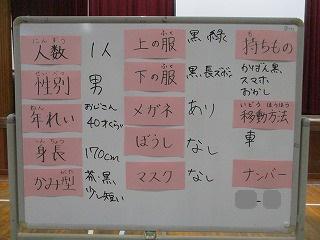 にんずう
人数 1人
せいべつ
性別 男
ねん
年れい おじさん
40才くらい
しんちょう
身長 170cm
がた
かみ型 茶・黒
少し短い
ふく
上の服 黒、緑
ふく
下の服 黒、長ズボン
メガネ あり
ぼうし なし
マスク なし
も
持ちもの
かばん黒
スマホ
おかし
いどう ほうほう
移動方法
車
ナンバー
-